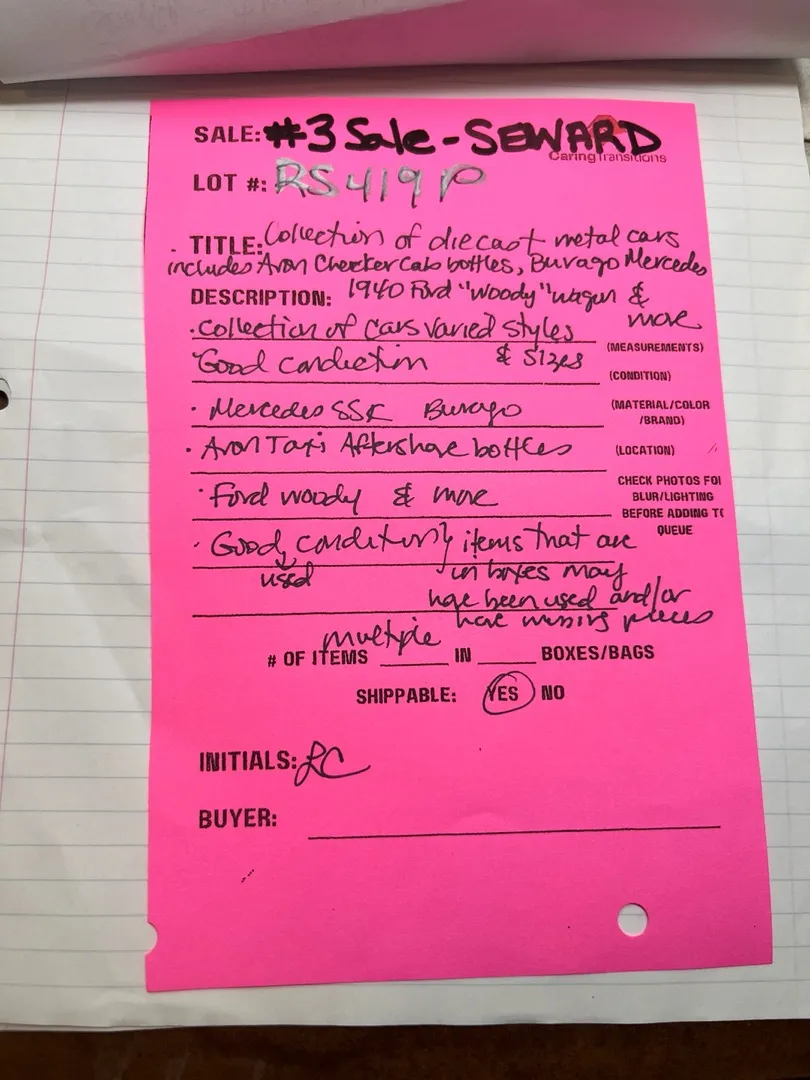 SALE: #3 Sale - SEWARD
CaringTransitions
LOT #: RS419P
· TITLE: Collection of diecast metal cars
includes Avon Checker Cab bottles, Burago Mercedes
DESCRIPTION: 1940 Ford "Woody" wagon &
more
· collection of cars varied styles
& sizes
(MEASUREMENTS)
Good condection
(CONDITION)
· Mercedes SSK Burago
(MATERIAL/COLOR
/BRAND)
· Avon Taxi Aftershave bottles
(LOCATION)
· Ford woody & more
CHECK PHOTOS FO
BLUR/LIGHTING
BEFORE ADDING T
QUEUE
· Good condition items that are
used in boxes may
have been used and/or
have missing pieces
multiple
# OF ITEMS ______ IN ______ BOXES/BAGS
SHIPPABLE: YES NO
INITIALS: LC
BUYER: